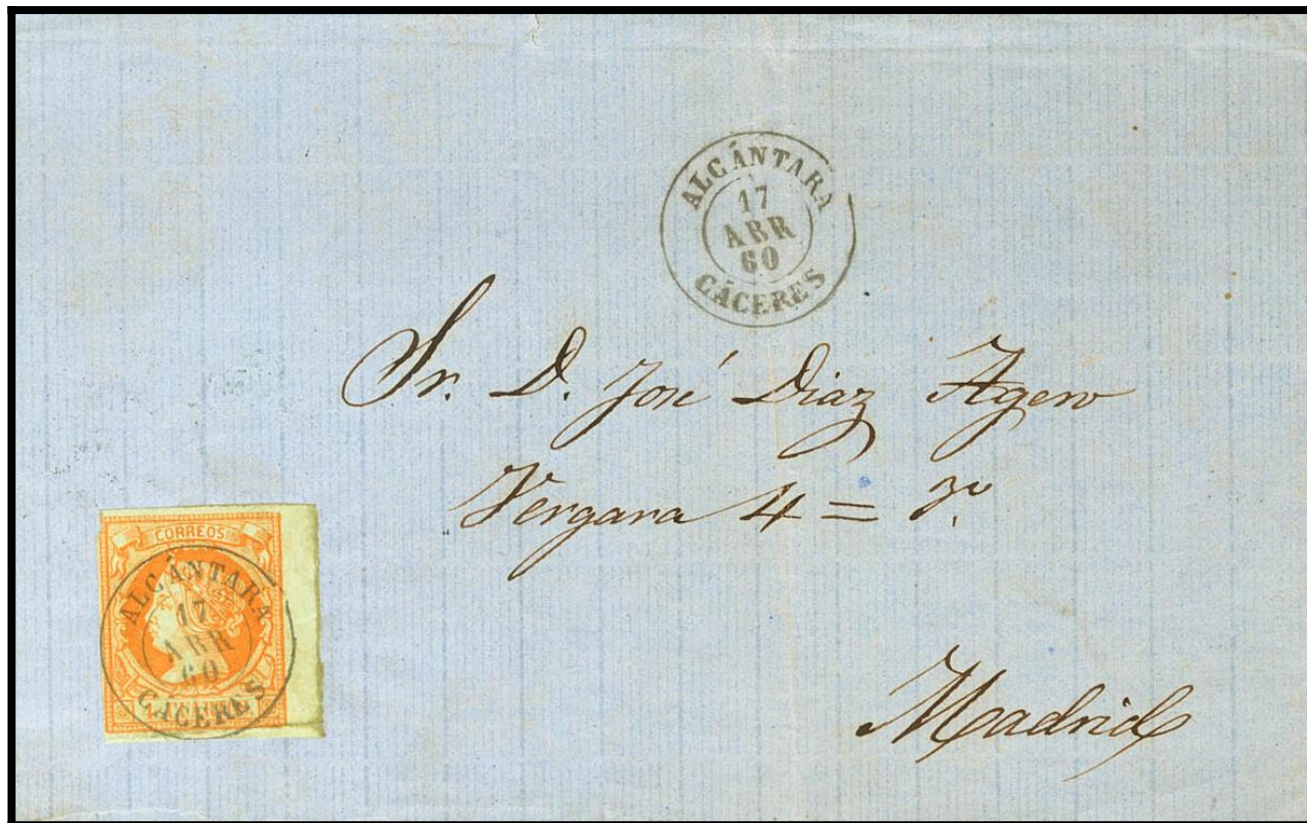 ALCÁNTARA
17
ABR
60
CÁCERES
Sr. D. José Diaz Agero
Vergara 4 = 3º
Madrid
CORREOS
ALCÁNTARA
17
ABR
60
CÁCERES